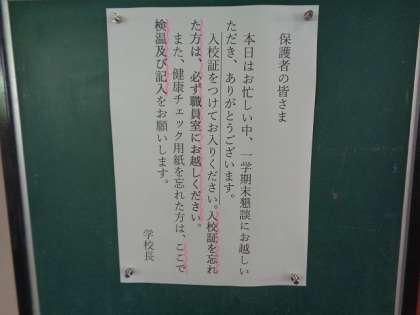 保護者の皆さま
本日はお忙しい中、一学期末懇談にお越しい
ただき、ありがとうございます。
入校証をつけてお入りください。入校証を忘れ
た方は、必ず職員室にお越しください。
また、健康チェック用紙を忘れた方は、ここで
検温及び記入をお願いします。
学校長